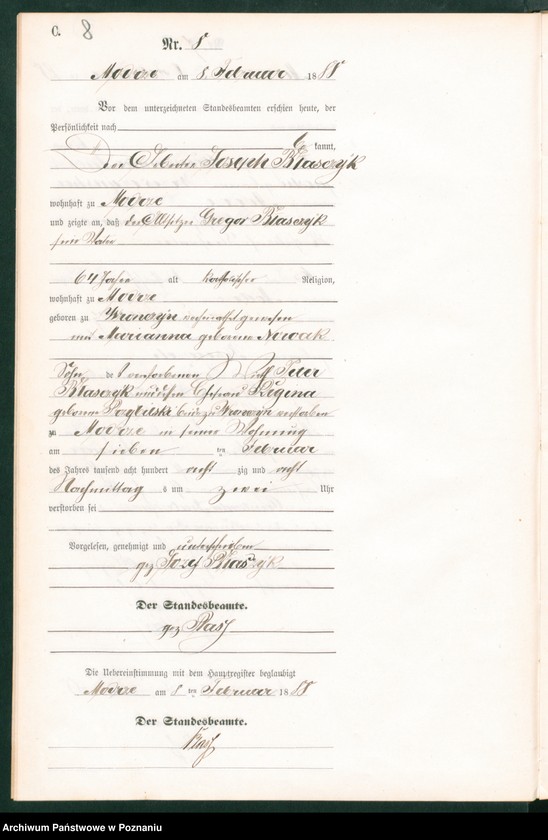 C. 8
Nr. 8
Modrze am 8. Februar 1888
Vor dem unterzeichneten Standesbeamten erschien heute, der
Persönlichkeit nach
kannt,
Der Joseph Błaszyk
wohnhaft zu Modrze
und zeigte an, daß der Gregor Błaszyk
sein Vater
64 Jahre alt katholischer Religion,
wohnhaft zu Modrze
geboren zu verheirathet gewesen
mit Marianna geborene Nowak
Sohn des verstorbenen Peter
Błaszyk und dessen Ehefrau
geborene verstorben
zu Modrze in seiner Wohnung
am sieben ten Februar
des Jahres tausend acht hundert acht zig und acht
Nachmittag s um zwei Uhr
verstorben sei
Vorgelesen, genehmigt und unterschrieben
gez Józef Błaszyk
Der Standesbeamte.
gez
Die Uebereinstimmung mit dem Hauptregister beglaubigt
Modrze am 8 ten Februar 1888
Der Standesbeamte.
Archiwum Państwowe w Poznaniu